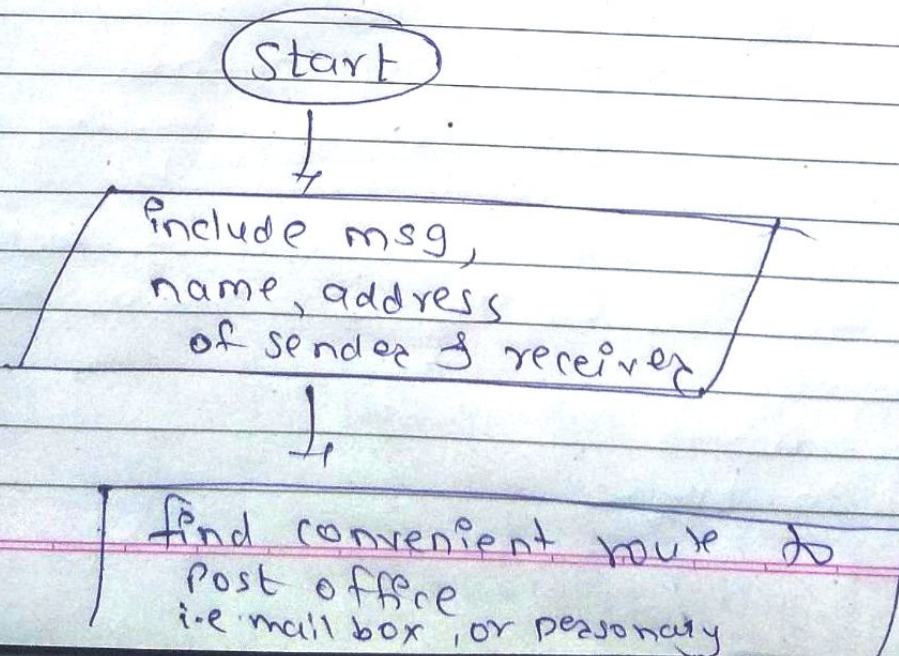 Start
include msg,
name, address
of sender & receiver
find convenient route to
Post office
i.e mail box, or personaly